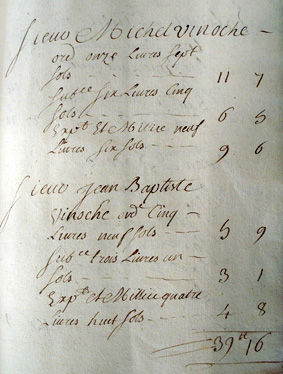 Sieur Michel Vinoche -
ord onze Livres Sept
Sols - - - 11 7
Subce Six Livres Cinq
Sols - - - 6 5
Expt Et Millice neuf
Livres Six Sols - - 9 6
Sieur Jean Baptiste
Vinoche ord Cinq -
Livres neuf Sols - - 5 9
Subce trois Livres un
Sols - - - 3 1
Expt et Millice quatre
Livres huit Sols - - 4 8
39tt 16